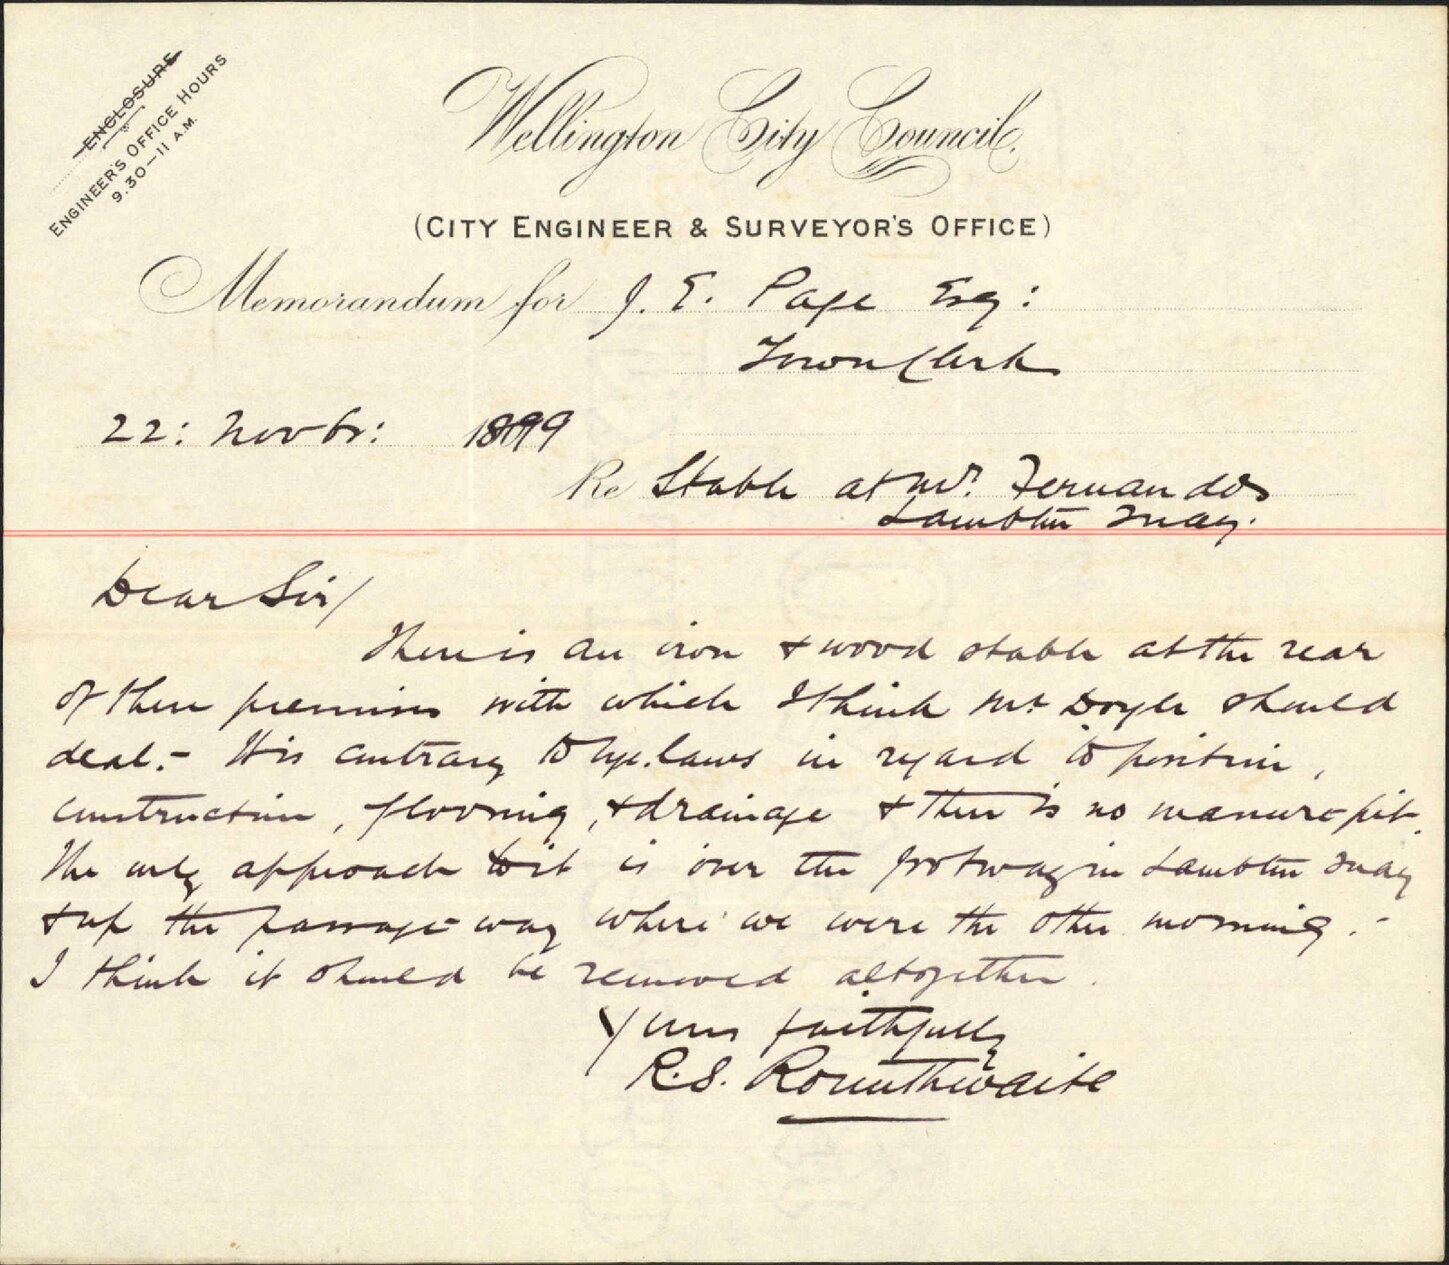 ENCLOSURE
ENGINEER'S OFFICE HOURS
9.30—11 A.M.
Wellington City Council.
(CITY ENGINEER & SURVEYOR'S OFFICE)
Memorandum for J. E. Page Esq:
Town Clerk
22: Novbr: 1899
Re Stable at Mr. Fernandos
Lambton Quay.
Dear Sir/
There is an iron & wood stable at the rear
of these premises with which I think Mr Doyle should
deal.- It is contrary to bye.laws in regard to position,
construction, flooring, & drainage & there is no manure-pit.
The only approach to it is over the footway in Lambton Quay
& up the passage-way where we were the other morning.-
I think it should be removed altogether.
Yours faithfully
R.S. Rounthwaite